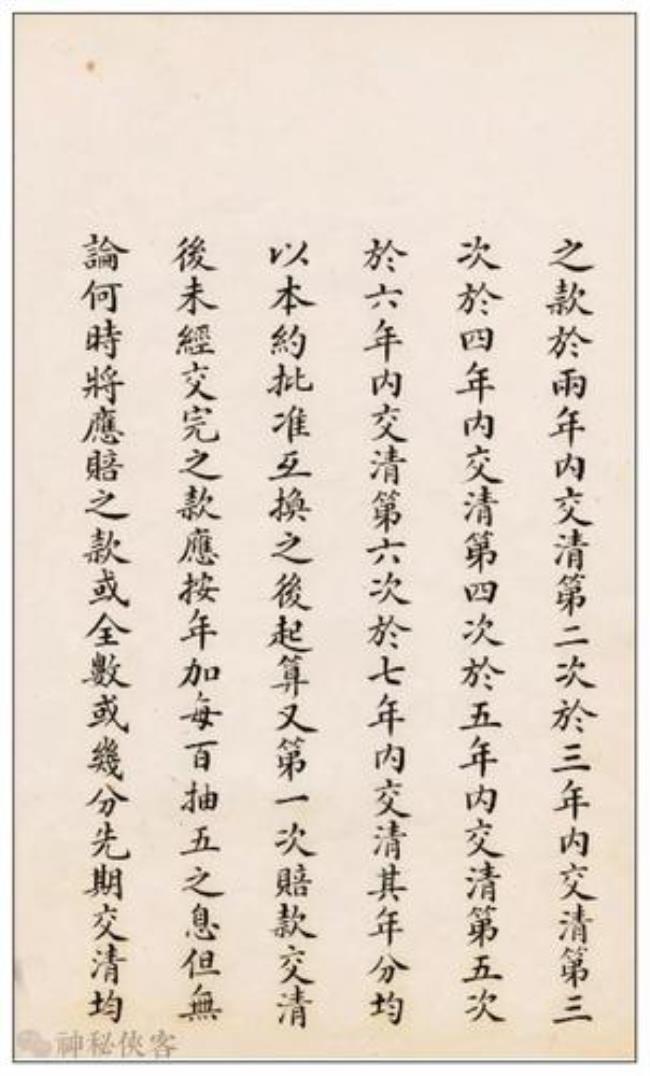 之款於兩年内交清第二次於三年内交清第三
次於四年内交清第四次於五年内交清第五次
於六年内交清第六次於七年内交清其年分均
以本約批准互換之後起算又第一次賠款交清
後未經交完之款應按年加每百抽五之息但無
論何時將應賠之款或全數或幾分先期交清均
神秘俠客